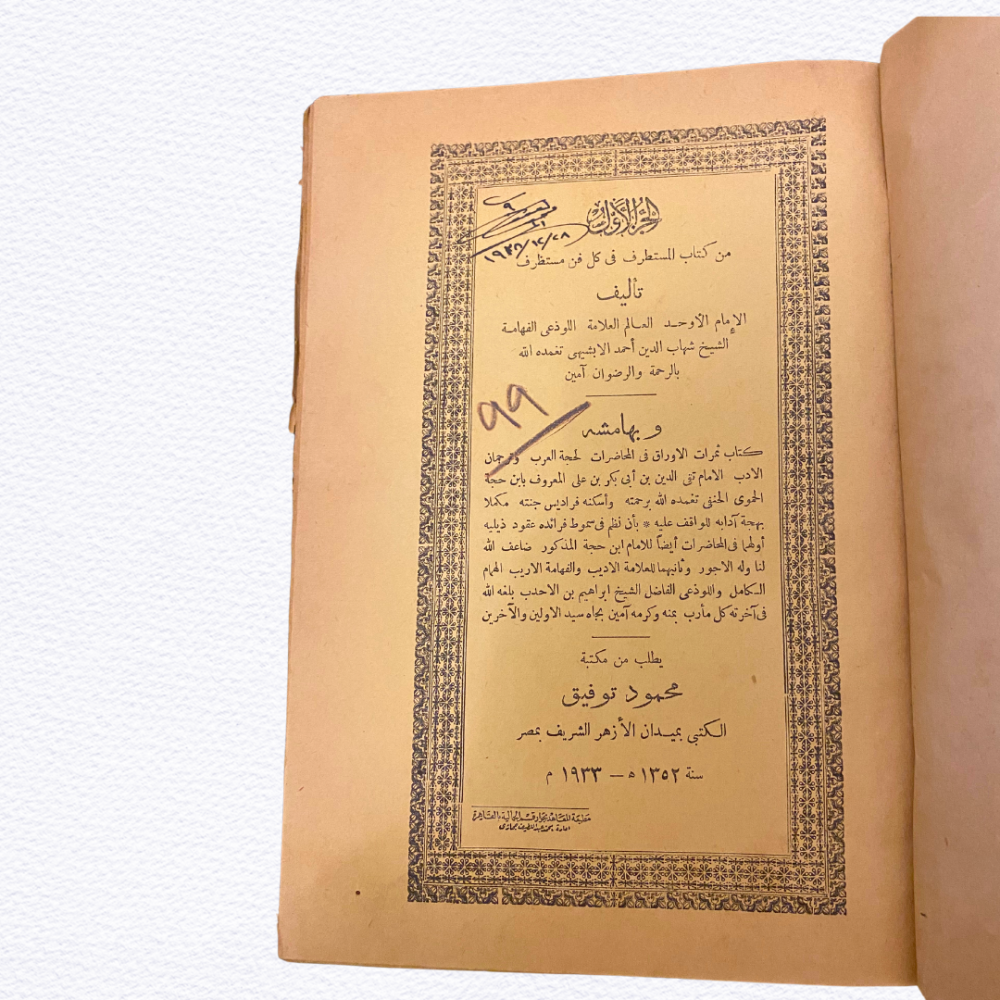 الجزء الأول
١٩٣٨/١٢/٢٨
من كتاب المستطرف فى كل فن مستظرف
تأليف
الإمام الأوحد العالم العلامة اللوذعى الفهامة
الشيخ شهاب الدين أحمد الابشيهى تغمده الله
بالرحمة والرضوان آمين
٩٩
وبهامشه
كتاب ثمرات الاوراق فى المحاضرات لحجة العرب وترجمان
الادب الامام تقى الدين بن أبى بكر بن على المعروف بابن حجة
الحموى الحنفى تغمده الله برحمته وأسكنه فراديس جنته مكملا
بهجة آدابه للواقف عليه * بأن نظم فى سموط فرائده عقود ذيليه
أولهما فى المحاضرات أيضاً للامام ابن حجة المذكور ضاعف الله
لنا وله الاجور وثانيهما للعلامة الاديب والفهامة الاريب الهمام
الكامل واللوذعى الفاضل الشيخ ابراهيم بن الاحدب بلغه الله
فى آخرته كل مأرب بمنه وكرمه آمين بجاه سيد الاولين والآخرين
يطلب من مكتبة
محمود توفيق
الكتبي بميدان الأزهر الشريف بمصر
سنة ١٣٥٢ ه – ١٩٣٣ م
مطبعة المعاهد بجوار قسم الجمالية بالقاهرة